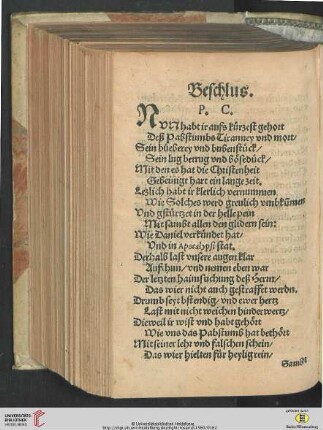 Beschlus.
P. C.
NVN habt ir auffs kürzest gehort
Deß Pabstumbs Tiranney vnd mort/
Sein büeberey vnd bubenstück/
Sein lug betrug vnd bösedück/
Mit den es hat die Christenheit
Gebeinigt hart ein lange zeit.
Lezlich habt ir klerlich vernummen
Wie Solches werd greulich vmbkumen
Vnd gstürzet in der helle pein
Mit sambt allen den glidern sein:
Wie Daniel verkündet hat/
Vnd in Apocalypsi stat.
Derhalb last vnsere augen klar
Auffthun/ vnd nemen eben war
Der letzten haimsuchung deß Herrn/
Das wier nicht auch gestraffet werdn.
Drumb seyt bstendig/ vnd ewer hertz
Last mit nicht weichen hinderwertz/
Dieweil ir wist vnd habt gehört
Wie vns das Pabstumb hat bethört
Mit seiner lehr vnd falschen schein/
Das wier hielten für heylig rein/
Sambt
UNIVERSITÄTS-
BIBLIOTHEK
HEIDELBERG
© Universitätsbibliothek Heidelberg
gefördert durch